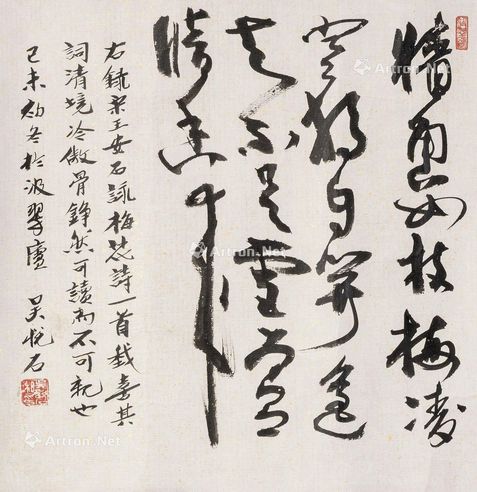 牆角數枝梅凌
寒獨自開遙
知不是雪為有
暗香來
右錄宋王安石詠梅花詩一首我喜其
詞清境冷傲骨錚然可讀而不可親也
己未初冬於汲翠廬 吳悅石
Artron.Net
Artron.Net
Artron.Net
Artron.Net